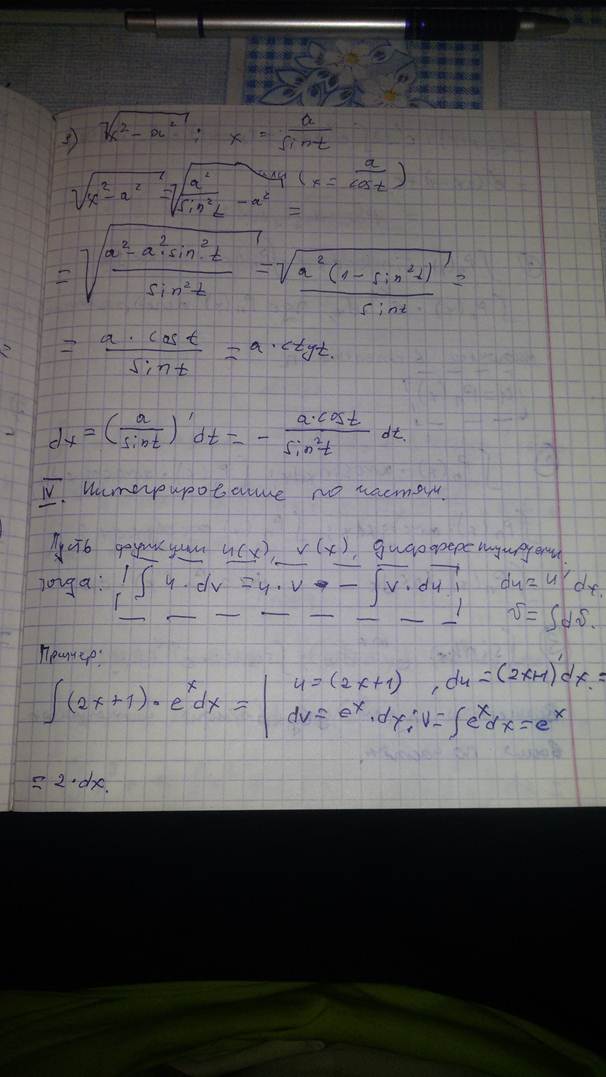 3) √(x² - a²); x = a/sin t
√(x² - a²) = √(a²/sin²t - a²) = или (x = a/cos t)
= √((a² - a²·sin²t)/sin²t) = √(a²(1 - sin²t)/sin t) =
= a·cos t/sin t = a·ctg t.
dx = (a/sin t)' dt = - a·cos t/sin²t dt.
IV. Интегрирование по частям.
Пусть функции u(x), v(x), дифференцируемы.
тогда: ∫ u·dv = u·v - ∫ v·du du = u' dx.
v = ∫ dv.
Пример:
∫ (2x+1)·eˣ dx = | u = (2x+1), du = (2x+1)' dx. =
dv = eˣ·dx; v = ∫ eˣ dx = eˣ
= 2·dx.